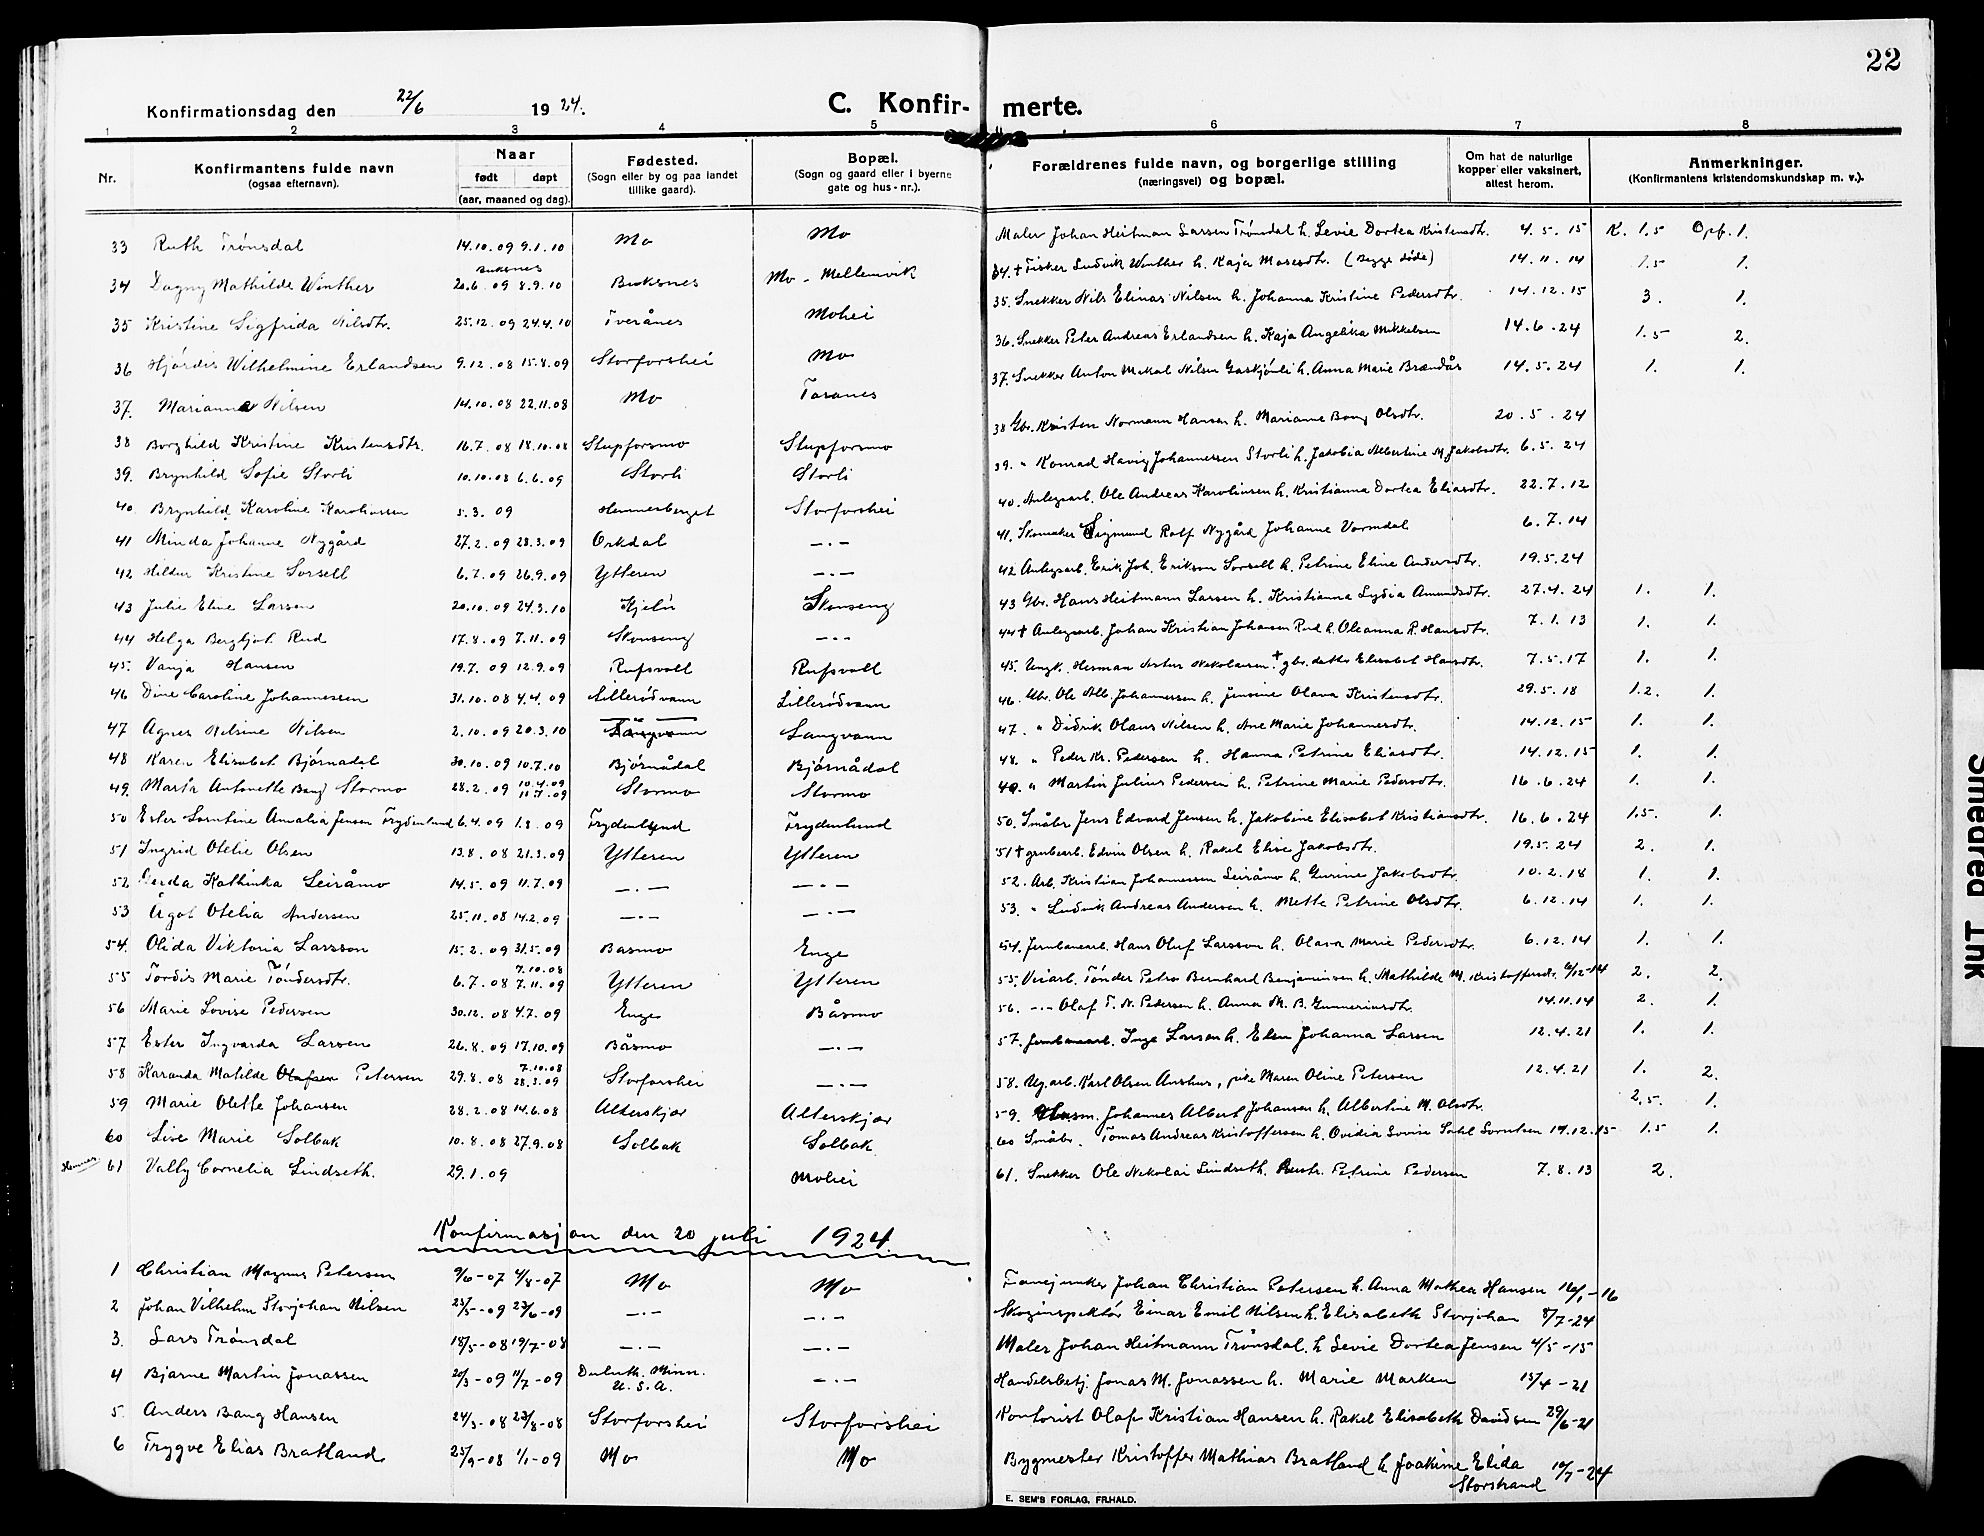 22
Konfirmationsdag den 22/6 1924. C. Konfir- merte.
1 2 3 4 5 6 7 8
Nr. Konfirmantens fulde navn (ogsaa efternavn). Naar født døpt (aar, maaned og dag). Fødested. (Sogn eller by og paa landet tillike gaard). Bopæl. (Sogn og gaard eller i byerne gate og hus-nr.). Forældrenes fulde navn, og borgerlige stilling (næringsvei) og bopæl. Om hat de naturlige kopper eller vaksinert, attest herom. Anmerkninger. (Konfirmantens kristendomskundskap m. v.).
33 Ruth Trønsdal 14.10.09 9.1.10 Mo Mo Maler Johan Heitman Larsen Trønsdal h. Levie Dortea Kristensdtr. 4.5.15 K. 1.5 Opf. 1.
34 Dagny Mathilde Winther 20.6.09 Buksnes 8.9.10 Buksnes Mo - Mellemvik 34. † Fisker Ludvik Winther h. Kaja Mosesdtr. (Begge døde) 14.11.14 1.5 1.
35 Kristine Sigfrida Nilsdtr. 25.12.09 24.4.10 Tverånes Mohei 35. Snekker Nils Elinas Nilsen h. Johanna Kristine Pedersdtr. 14.12.15 3. 1.
36 Hjórdis Wilhelmine Erlandsen 9.12.08 15.8.09 Storforshei Mo 36. Snekker Peter Andreas Erlandsen h. Kaja Angelika Mikkelsen 14.6.24 1.5 2.
37. Marianne Nilsen 14.10.08 22.11.08 Mo Toranes 37. Snekker Anton Mikal Nilsen Gaskjønli h. Anna Marie Brændås 14.5.24 1. 1.
38 Borghild Kristine Kristensdtr. 16.7.08 18.10.08 Stupforsmo Stupforsmo 38 Gbr. Kristen Normann Hansen h. Marianne Bang Olsdtr. 20.5.24
39. Brynhild Sofie Storli 10.10.08 6.6.09 Storli Storli 39. " Konrad Havig Johannessen Storli h. Jakobia Albertine M. Jakobsdtr. 6.5.24
40. Brynhild Karoline Karoliussen 5.3.09 Hemnesberget Storforshei 40. Anlegsarb. Ole Andreas Karolinsen h. Kristianna Dortea Eliasdtr. 22.7.12
41 Minda Johanne Nygård 27.2.09 28.3.09 Orkdal —.— 41. Skomaker Sigmund Rolf Nygård Johanne Vormdal 6.7.14
42 Hildur Kristine Sorsell 6.7.09 26.9.09 Ytteren —.— 42 Anlegsarb. Erik Joh. Erikson Sorsell h. Petrine Eline Andersdtr. 19.5.24
43 Julie Eline Larsen 20.10.09 24.3.10 Skonseng 43 Gbr. Hans Heitmann Larsen h. Kristianna Lydia Amundsdtr. 27.4.24 1. 1.
44 Helga Bergljot Rud 17.8.09 7.11.09 Skonseng —.— 44 † Anlegsarb. Johan Kristian Johansen Rud h. Oleanna R. Hansdtr. 7.1.13 1. 1.
45. Vanja Hansen 19.7.09 12.9.09 Rufsvoll Rufsvoll 45. Ungk. Herman Nikolaisen † gbr. datter Elisabet Hansdtr. 7.5.17 1. 1.
46 Dine Caroline Johannessen 31.10.08 4.4.09 Lillerødvann Lillerødvann 46. Gbr. Ole Alb. Johannessen h. Jensine Olava Kristensdtr. 29.5.18 1.2. 1.
47 Agnes Nilsine Nilsen 2.10.09 20.3.10 Langvann Langvann 47. " Didrik Olaus Nilsen h. Ane Marie Johannesdtr. 14.12.15 1. 1.
48 Karen Elisabet Bjørnadal 30.10.09 10.7.10 Bjørnådal Bjørnådal 48. " Peder Kr. Pedersen h. Hanna Petrine Eliasdtr. 14.12.15 1. 1.
49. Marta Antonette Bang Stormo 28.2.09 10.4.09 11.7.09 Stormo Stormo 49. " Martin Julius Pedersen h. Petrine Marie Pedersdtr. 16.6.24 1. 1.
50 Ester Lorntine Amalia Jensen Frydenlund 6.4.09 1.8.09 Frydenlund Frydenlund 50. Småbr. Jens Edvard Jensen h. Jakobine Elisabet Kristiansdtr. 16.6.24 1.5. 1.
51 Ingrid Otelie Olsen 13.8.08 21.3.09 Ytteren Ytteren 51 † grubearb. Edvin Olsen h. Rakel Elise Jakobsdtr. 19.5.24 2. 1.
52 Gerda Kathinka Leiråmo 14.5.09 11.7.09 —.— —.— 52. Arb. Kristian Johannessen Leiråmo h. Gurine Jakobsdtr. 10.2.18 1. 1.
53 Ågot Otelia Andersen 25.11.08 14.2.09 —.— —.— 53. " Ludvik Andreas Andersen h. Mette Petrine Olsdtr. 6.12.14 1. 1.
54. Olida Viktoria Larsson 15.2.09 31.5.09 Basmo Enge 54. Jernbanearb. Hans Oluf Larsson h. Olava Marie Pedersdtr. 6.12.14 1. 1.
55 Tordis Marie Tøndersdtr. 6.7.08 7.10.08 7.11.09 Ytteren Ytteren 55. Veiarb. Tønder Petro Bernhard Benjaminsen h. Mathilde M. Kristoffersdtr. 6/12-14 2. 2.
56 Marie Lovise Pedersen 30.12.08 4.7.09 Enge Båsmo 56. —.— Olaf T. N. Pedersen h. Anna M. B. Gunneriusdtr. 14.11.14 2. 1.
57 Ester Ingvarda Larsen 26.8.09 17.10.09 Båsmo —.— 57. Jernbanearb. Inge Larsen h. Elen Johanna Larsen 12.4.21 1. 1.
58 Karanda Matilde Olafsen Petersen 29.8.08 7.10.08 28.3.09 Storforshei —.— 58. Ug. arb. Karl Olsen Aushus, pike Maren Oline Petersen 12.4.21 1. 2.
59 Marie Olette Johansen 28.2.08 14.6.08 Alterskjær Alterskjær 59. Husm. Johannes Albert Johansen h. Albertine M. Olsdtr. 2.5. 1.
60 Lise Marie Solbak 10.8.08 27.9.08 Solbak Solbak 60 Småbr. Tomas Andreas Kristoffersen h. Ovidia Lovise Dahl Lorntsen 14.12.15 1.5 1.
Hemnes 61 Vally Cornelia Lindseth. 29.1.09 Mohei 61. Snekker Ole Nikolai Lindseth. Hustr. Petrine Pedersen 7.8.13 2.
Konfirmasjon den 20 juli 1924
1 Christian Magnus Petersen 9/6-07 4/8-07 Mo Mo Johan Christian Petersen h. Anna Mathea Hansen 16/1-16
2 Johan Vilhelm Storjohan Nilsen 23/5-09 27/6-09 —.— —.— Skoginspektør Einar Emil Nilsen h. Elisabeth Storjohan 8/7-24
3. Lars Trønsdal 18/5-08 19/7-08 —.— —.— Maler Johan Heitmann Trønsdal h. Levie Dortea Jensen 4/5-15
4 Bjarne Martin Jonassen 20/3-09 11/7-09 Duluth. Minn. U.S.A. —.— Handelsbetj. Jonas M. Jonassen h. Marie Marken 13/4-21
5. Anders Bang Hansen 24/3-08 23/8-08 Storforshei Storforshei Kontorist Olaf Kristian Hansen h. Rakel Elisabeth Davidsen 29/6-21
6 Trygve Elias Bratland 25/9-08 1/1-09 Mo Mo Bygmester Kristoffer Mathias Bratland h Joakime Elida Storstrand 10/7-24
E. SEM'S FORLAG, FR.HALD.
Smedred Trik